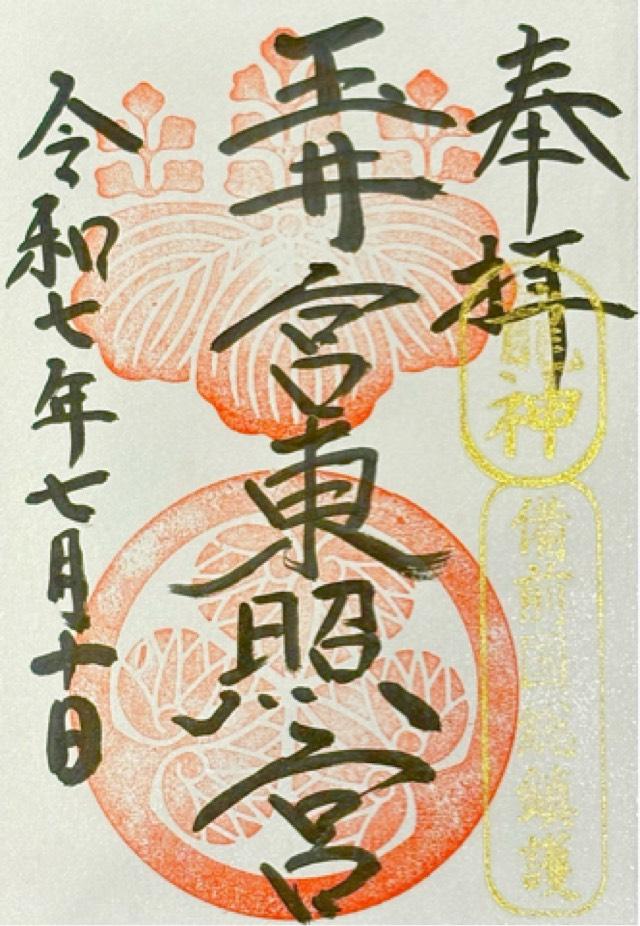 奉拝
龍神
備前国総鎮護
玉井宮東照宮
令和七年七月十日